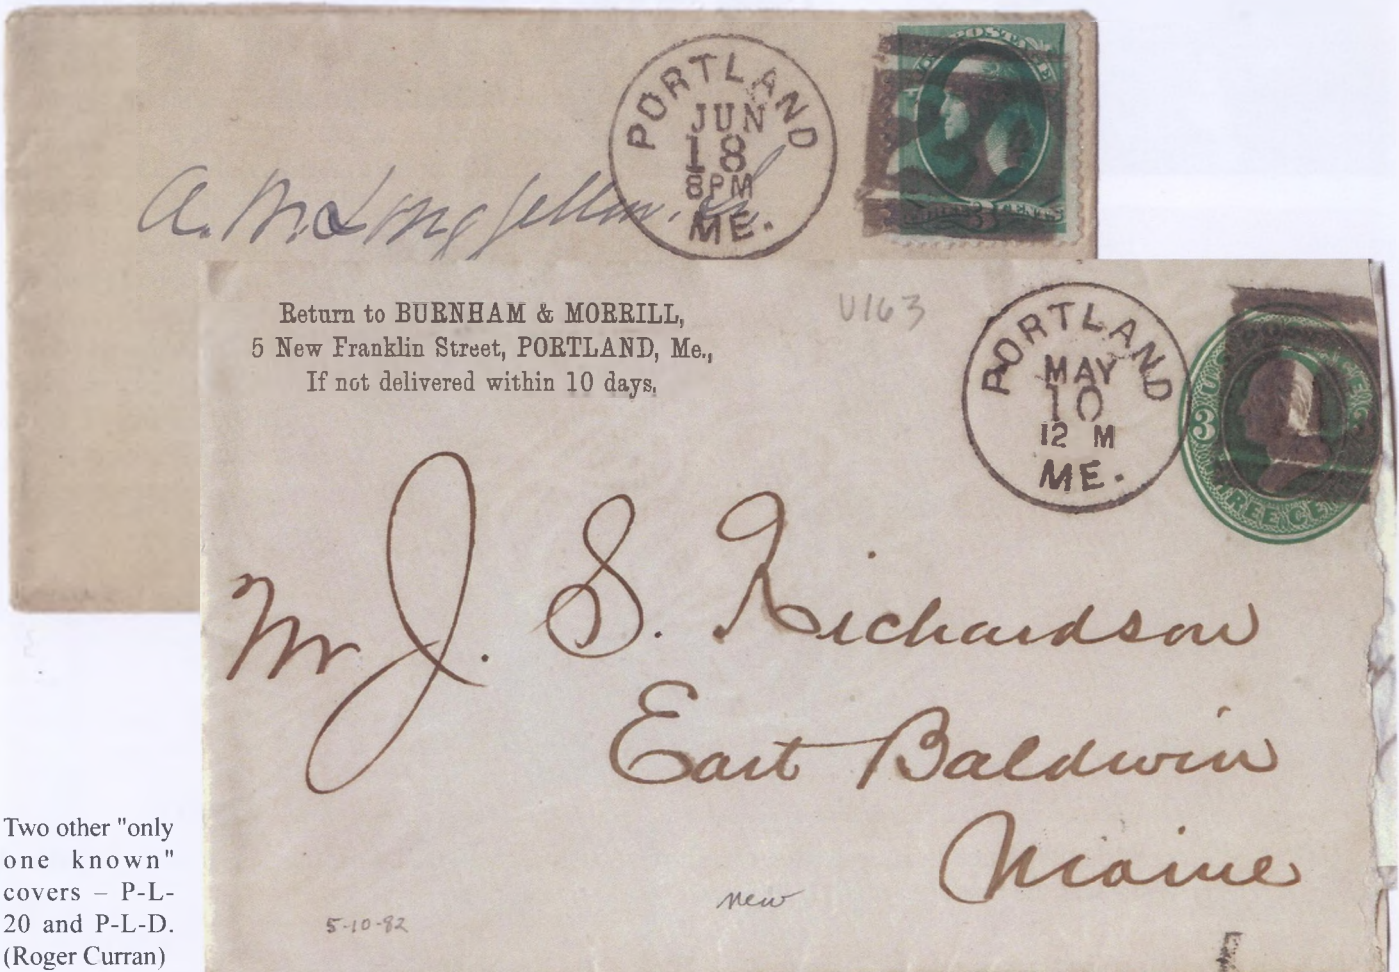 PORTLAND
JUN
18
8PM
ME.
POSTAGE
20
THREE 3 CENTS
A. W. Longfellow.
Return to BURNHAM & MORRILL,
5 New Franklin Street, PORTLAND, Me.,
If not delivered within 10 days.
U163
PORTLAND
MAY
10
12 M
ME.
U.S. POSTAGE
3
THREE CE
Mr J. S. Richardson
East Baldwin
Maine
new
5-10-82
Two other "only
one known"
covers – P-L-
20 and P-L-D.
(Roger Curran)